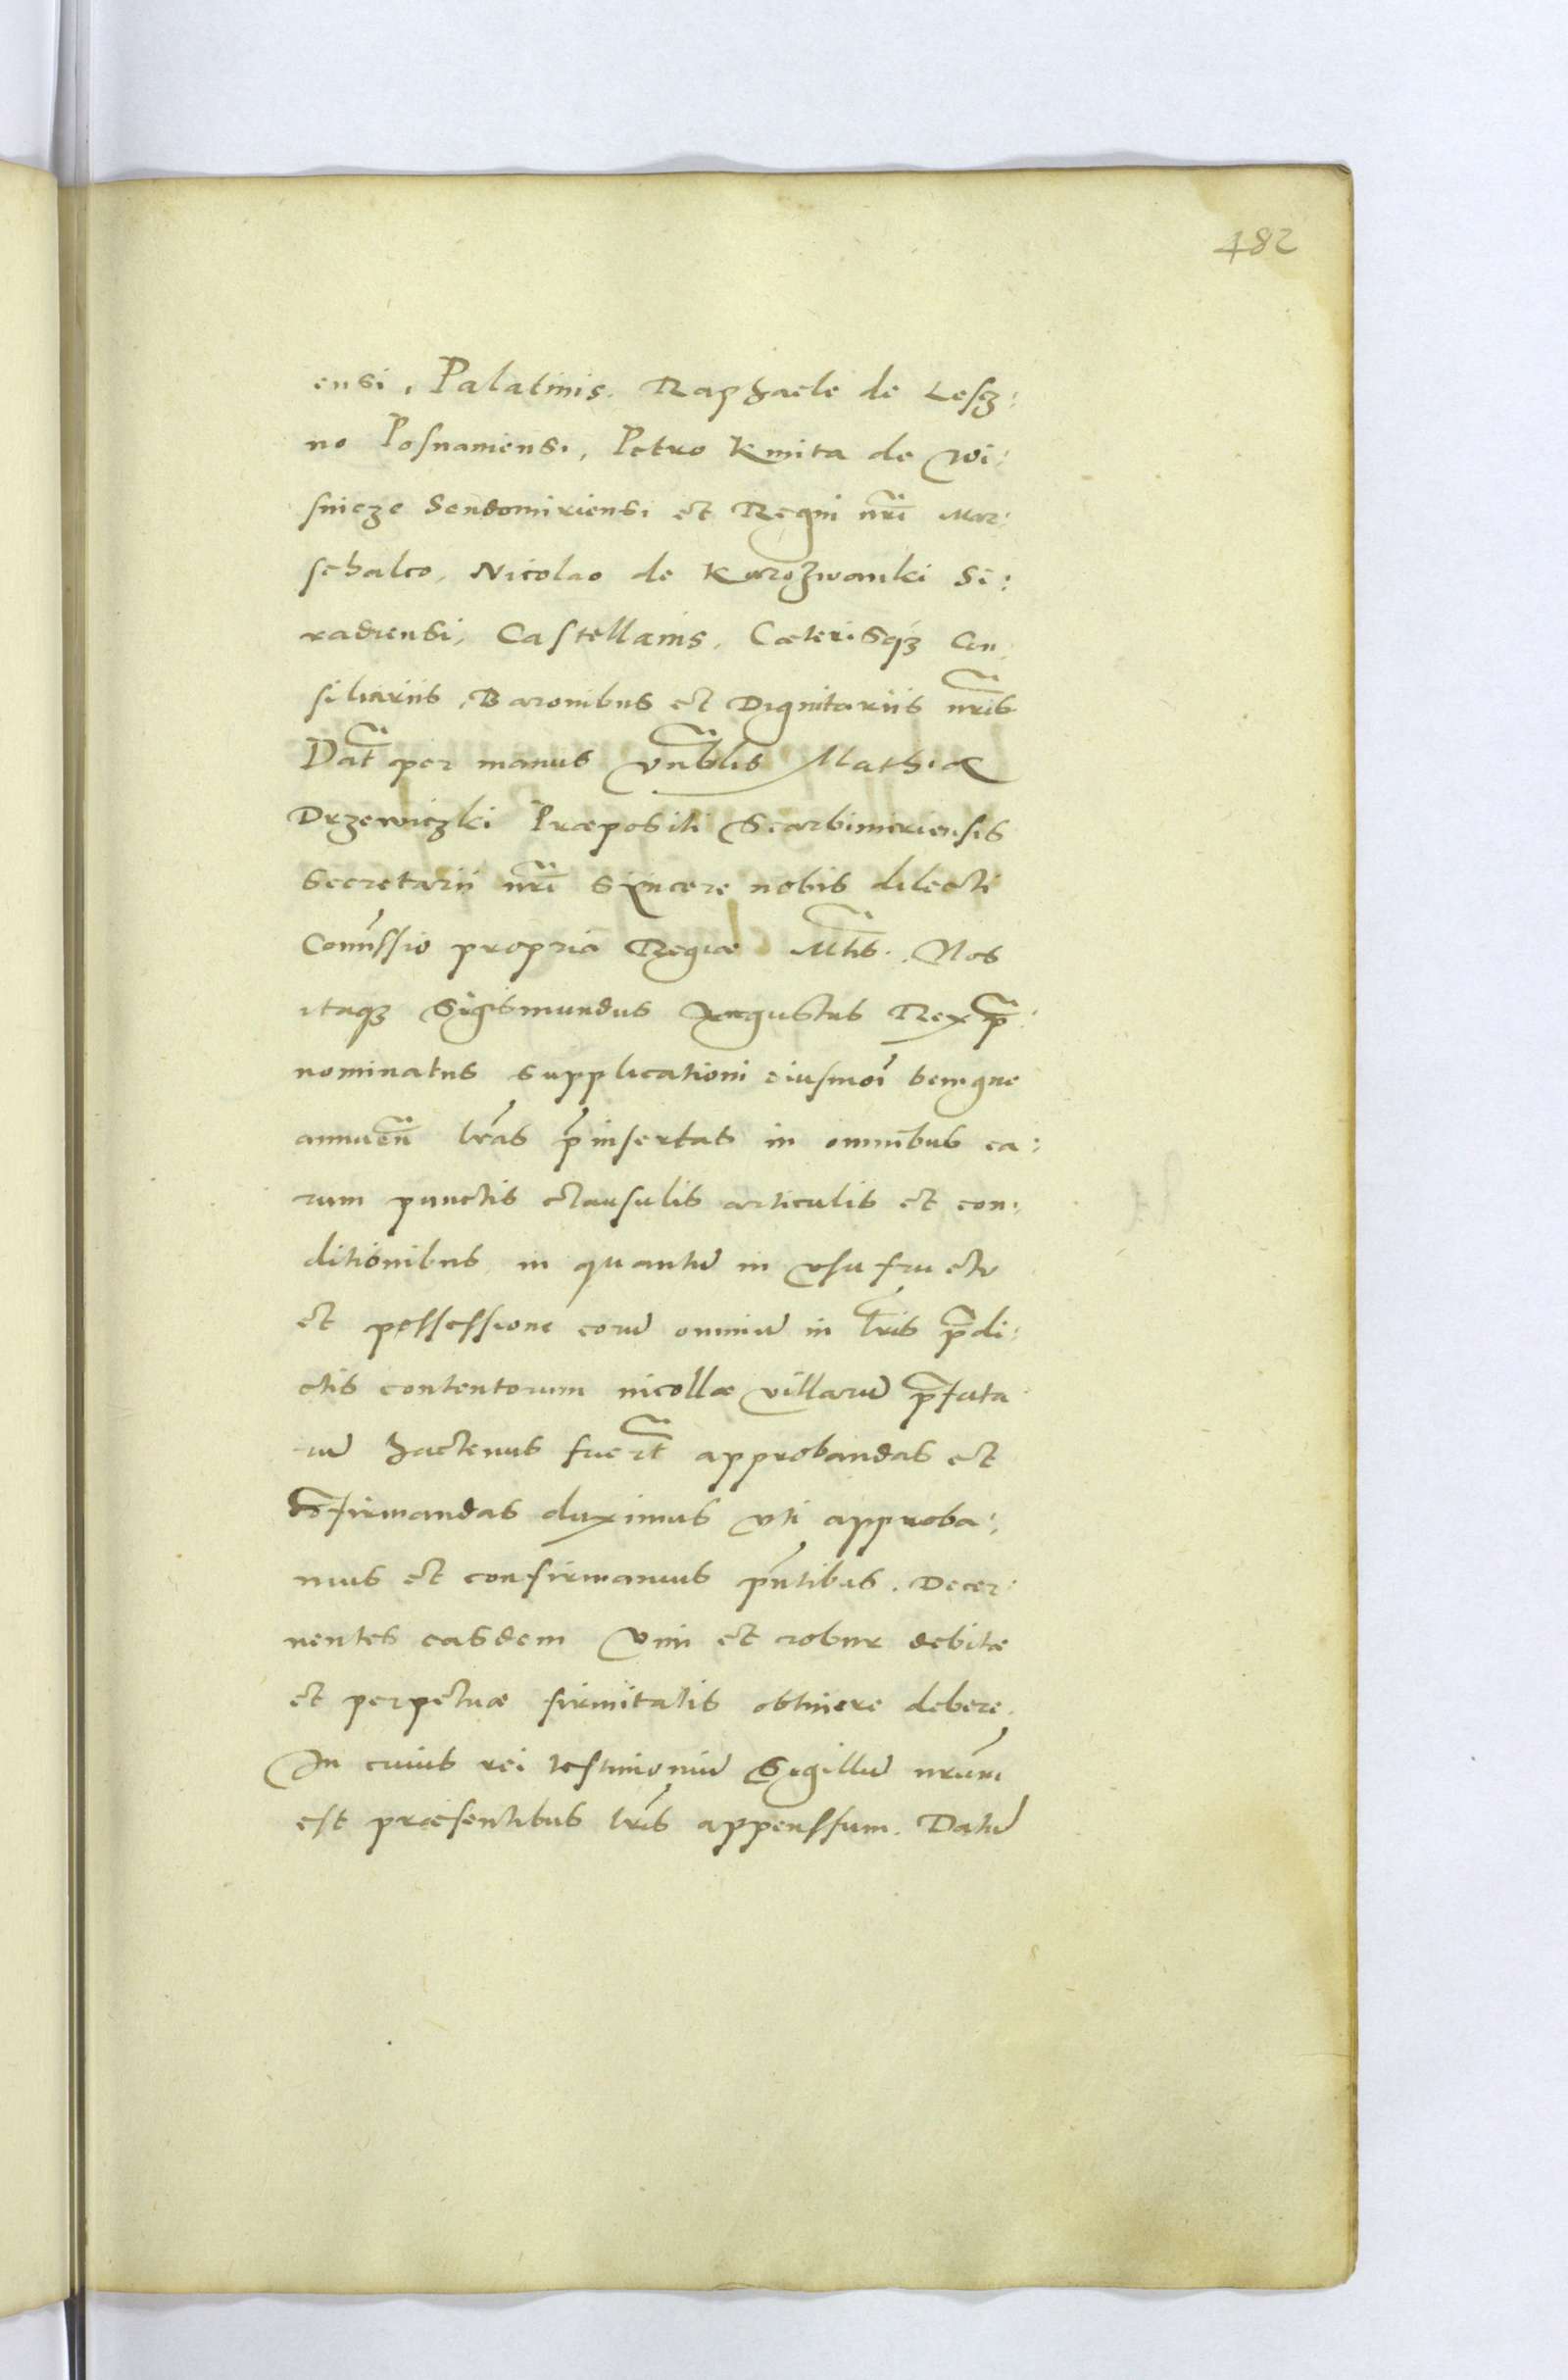 482
ensi, Palatinis. Raphaele de Lesz:
no Posnaniensi, Petro Kmita de Wi:
snicze Sendomiriensi et Regni nr̃i Mar:
schalco, Nicolao de Kurozwanki Si:
radiensi, Castellanis, Cæterisqꝫ Con:
siliariis, Baronibus et Dignitariis nr̃is
Dat̃ per manus vn̄blis Mathiæ
Drzewiczki Præpositi Scarbimiriensis
Secretarii nr̃i sincere nobis dilecti
Com̃issio propria Regiæ Mt̃is. Nos
itaqꝫ Sigismundus Augustus Rex p̃:
nominatus supplicationi eiusmoi benigne
annuen̄ lr̃as p̃insertas in omnibus ea:
rum punctis clausulis articulis et con:
ditionibus in quantū in vsu fructu
et possessione eorū omniū in lr̃is p̃di:
ctis contentorum incollæ villarū p̃fata
rū hactenus fuer̃t approbandas et
cōfirmandas duximus vti approba:
mus et confirmamus p̃ntibus. Decer:
nentes easdem vim et robur debitæ
et perpetuæ firmitatis obtinere debere.
In cuius rei testimoniū Sigillū nr̃um
est præsentibus lr̃is appenssum. Datū